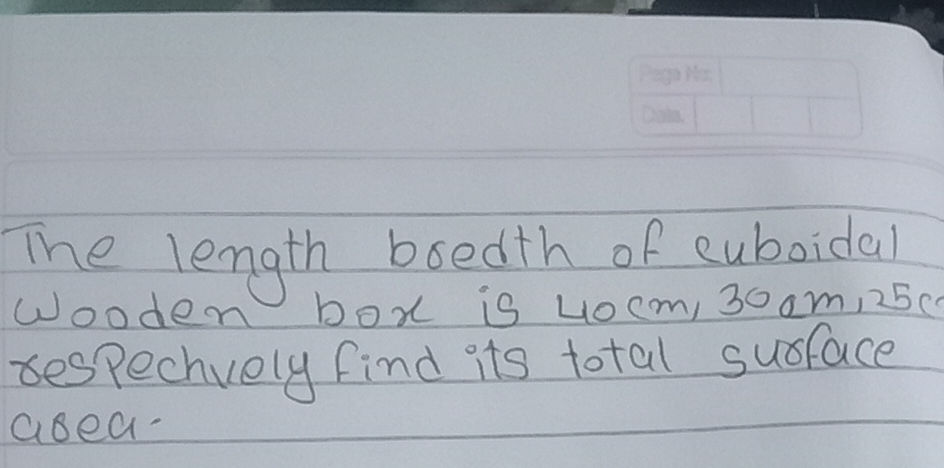 Page No:
Date.
The length bredth of cuboidal
wooden box is 40cm, 30cm, 25c
respechvely find its total surface
area.